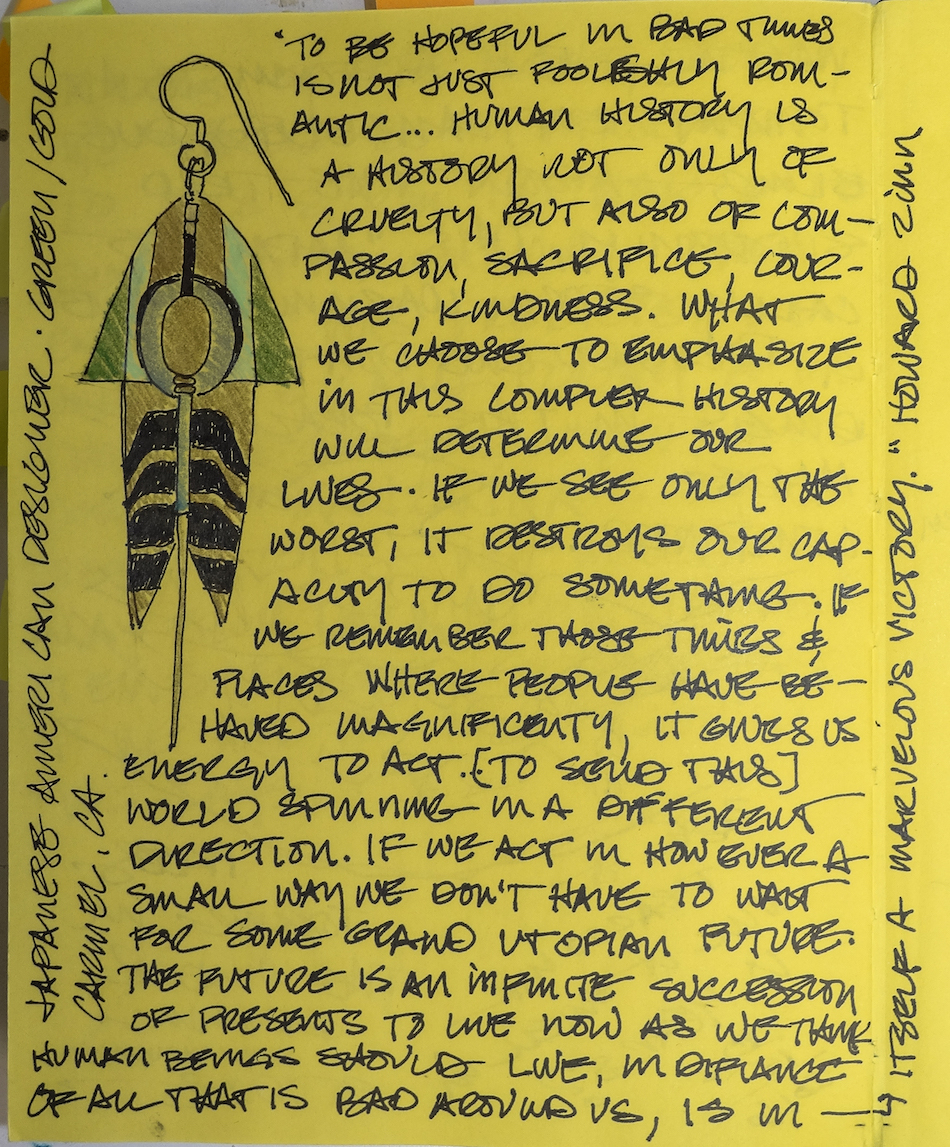 "TO BE HOPEFUL IN BAD TIMES
IS NOT JUST FOOLISHLY ROM-
ANTIC... HUMAN HISTORY IS
A HISTORY NOT ONLY OF
CRUELTY, BUT ALSO OF COM-
PASSION, SACRIFICE, COUR-
AGE, KINDNESS. WHAT
WE CHOOSE TO EMPHASIZE
IN THIS COMPLEX HISTORY
WILL DETERMINE OUR
LIVES. IF WE SEE ONLY THE
WORST, IT DESTROYS OUR CAP-
ACITY TO DO SOMETHING. IF
WE REMEMBER THOSE TIMES &
PLACES WHERE PEOPLE HAVE BE-
HAVED MAGNIFICENTY, IT GIVES US
ENERGY TO ACT. [TO SEND THIS]
WORLD SPINNING IN A DIFFERENT
DIRECTION. IF WE ACT IN HOWEVER A
SMALL WAY WE DON'T HAVE TO WAIT
FOR SOME GRAND UTOPIAN FUTURE.
THE FUTURE IS AN INFINITE SUCCESSION
OF PRESENTS TO LIVE NOW AS WE THINK
HUMAN BEINGS SHOULD LIVE, IN DEFIANCE
OF ALL THAT IS BAD AROUND US, IS IN
ITSELF A MARVELOUS VICTORY." HOWARD ZINN
JAPANESE AMERICAN DESIGNER. GREEN/GOLD
CARMEL, CA.